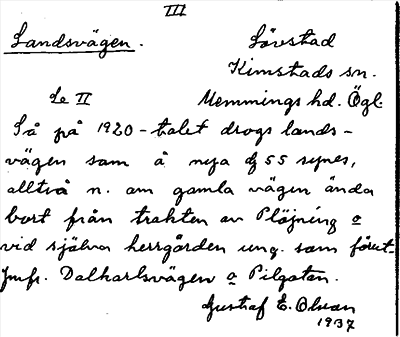 III
Landsvägen. Lövstad
Kimstads sn.
Se II Memmings hd. Ögl.
Så på 1920-talet drogs lands-
vägen som å nya gg 55 synes,
alltså n. om gamla vägen ända
bort från trakten av Plöjning o
vid själva herrgården ung. som förut.
Jmfr. Dalkarlsvägen o Pilgatan.
Gustaf E. Olsson
1937